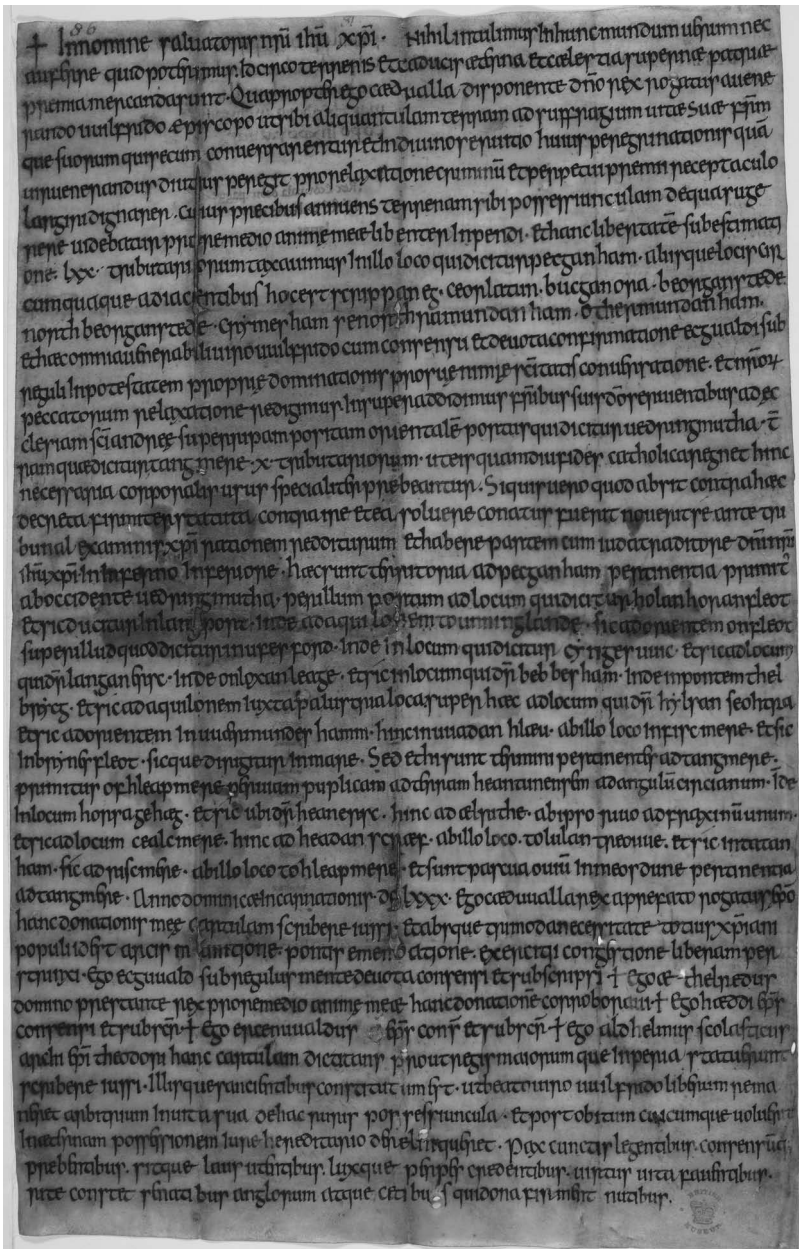 86
✝ In nomine salvatoris nr̄i ihū xp̄i · Nihil intulimus in hunc mundum uerum nec
auferre quid poterimus. Idcirco terrenis et caducis æterna et cælestia supernæ patriæ
premia mercanda sunt · Quapropter ego cædualla disponente dn̄o rex rogatus a uene
rando uuilfrido æpiscopo ut sibi aliquantulam terriam ad suffragium uitæ suæ fr̄m
que suorum qui secum conuersarentur et in diuino seruitio huius peregrinationis quā
uir uenerandus diutius peregit pro relaxatione criminū et perpetui premii receptaculo
largiri dignarer · cuius precibus annuens terrenam sibi possessiunculam de qua suge
rere uidebatur pro remedio anime meæ libenter inpendi · et hanc libertatē sub estimati
one · lxx · tributariorum taxauimus in illo loco qui dicitur pecgan ham · aliisque locis cir
cumquaque adiacentibus hoc est scrippan eg · ceorla tun · bucgan ora · beorgan stede
north beorgan stede · crymes ham · north mundan ham · other mundan ham ·
et hæc omnia uenerabili uiro uuilfrido cum consensu et deuota confirmatione ecgualdi sub
reguli in potestatem proprie dominationis pro sue nimie sc̄itatis conuersatione · et nr̄orum
peccatorum relaxatione redigimus · Insuper addidimus fr̄ibus suis dō seruientibus ad ec
clesiam sc̄i andreę super ripam positam orientalē portus qui dicitur uedringmutha · t̄
ram quæ dicitur tangmere · x · tributariorum · ut eis quamdiu fides catholica regnet hinc
necessaria corporalis usus specialiter prebeantur · Si quis uero quod absit contra hæc
decreta firmiter statuta contraire et ea soluere conatus fuerit nouerit se ante tri
bunal examinis xp̄i rationem redditurum et habere partem cum iuda traditore dn̄i nr̄i
ihū xp̄i in inferno inferiore · hæc sunt territoria ad pecgan ham pertinentia primit̄
ab occidente uedringmutha · per illum portum ad locum qui dicitur holan horan fleot
et sic ducitur in lang port · inde ad aquilonem to unninglande · sic ad orientem on fleot
super illud quod dicitur in ufer ford · inde in locum qui dicitur cynges uuic · et sic ad locum
qui dr̄ langan ersc · inde on loxan leage · et sic in locum qui dr̄ bebbes ham · inde in pontem thel
brycg · et sic ad aquilonem iuxta palustria loca super hæc ad locum qui dr̄ hylsan seohtra
et sic ad orientem in uuærmundes hamm · hinc in uuadan hlæu · ab illo loco in fisc mere · et sic
in brynes fleot · sicque dirigitur in mare · Sed et hi sunt termini pertinentes ad tangmere ·
primitus of hleapmere per uiam puplicam ad terram heantunensem ad angulū circianum · Inde
in locum horsa gehæg · et sic ubi dr̄ hean ersc · hinc ad ælrithe · ab ipso riuo ad fraxinū unum ·
et sic ad locum cealc mere · hinc ad headan scræf · ab illo loco · to lulan treouue · et sic in tatan
ham · sic ad risc mere · ab illo loco to hleapmere · et sunt pascua ouiū in meos dune pertinentia
ad tangmere · Anno dominicæ incarnationis · dc lxxx · Ego cæduualla rex a prefato rogatus ep̄o
hanc donationis meę cartulam scribere iussi · et absque trimoda necessitate totius xp̄iani
populi id est arcis munitione · pontis emendatione · exerciti congestione liberam per
strinxi · Ego ecguuald subregulus mente deuota consensi et subscripsi ✝ Ego æthelredus
domno prestante rex pro remedio anime meæ hanc donationē corroboraui ✝ Ego hæddi ep̄s
consensi et subscr̄ · ✝ Ego ercenuualdus ep̄s cons̄ et subscr̄ · ✝ Ego aldhelmus scolasticus
archi ep̄i theodori hanc cartulam dictitans prout regis maiorumque inperia statuerunt
scribere iussi · Illisque sancientibus constitutum est · ut beato uiro uuilfrido liberum rema
neret arbitrium in uita sua de hac rurus possessiuncula · et post obitum cuicumque uoluerit
in æternam possessionem iure hereditario derelinqueret · Pax cunctis legentibus · consensūque
prebentibus · sitque laus utentibus · luxque perpes credentibus · uirtus uita fauentibus ·
rite constet senatibus anglorum atque cetibus qui dona firment nutibus ·